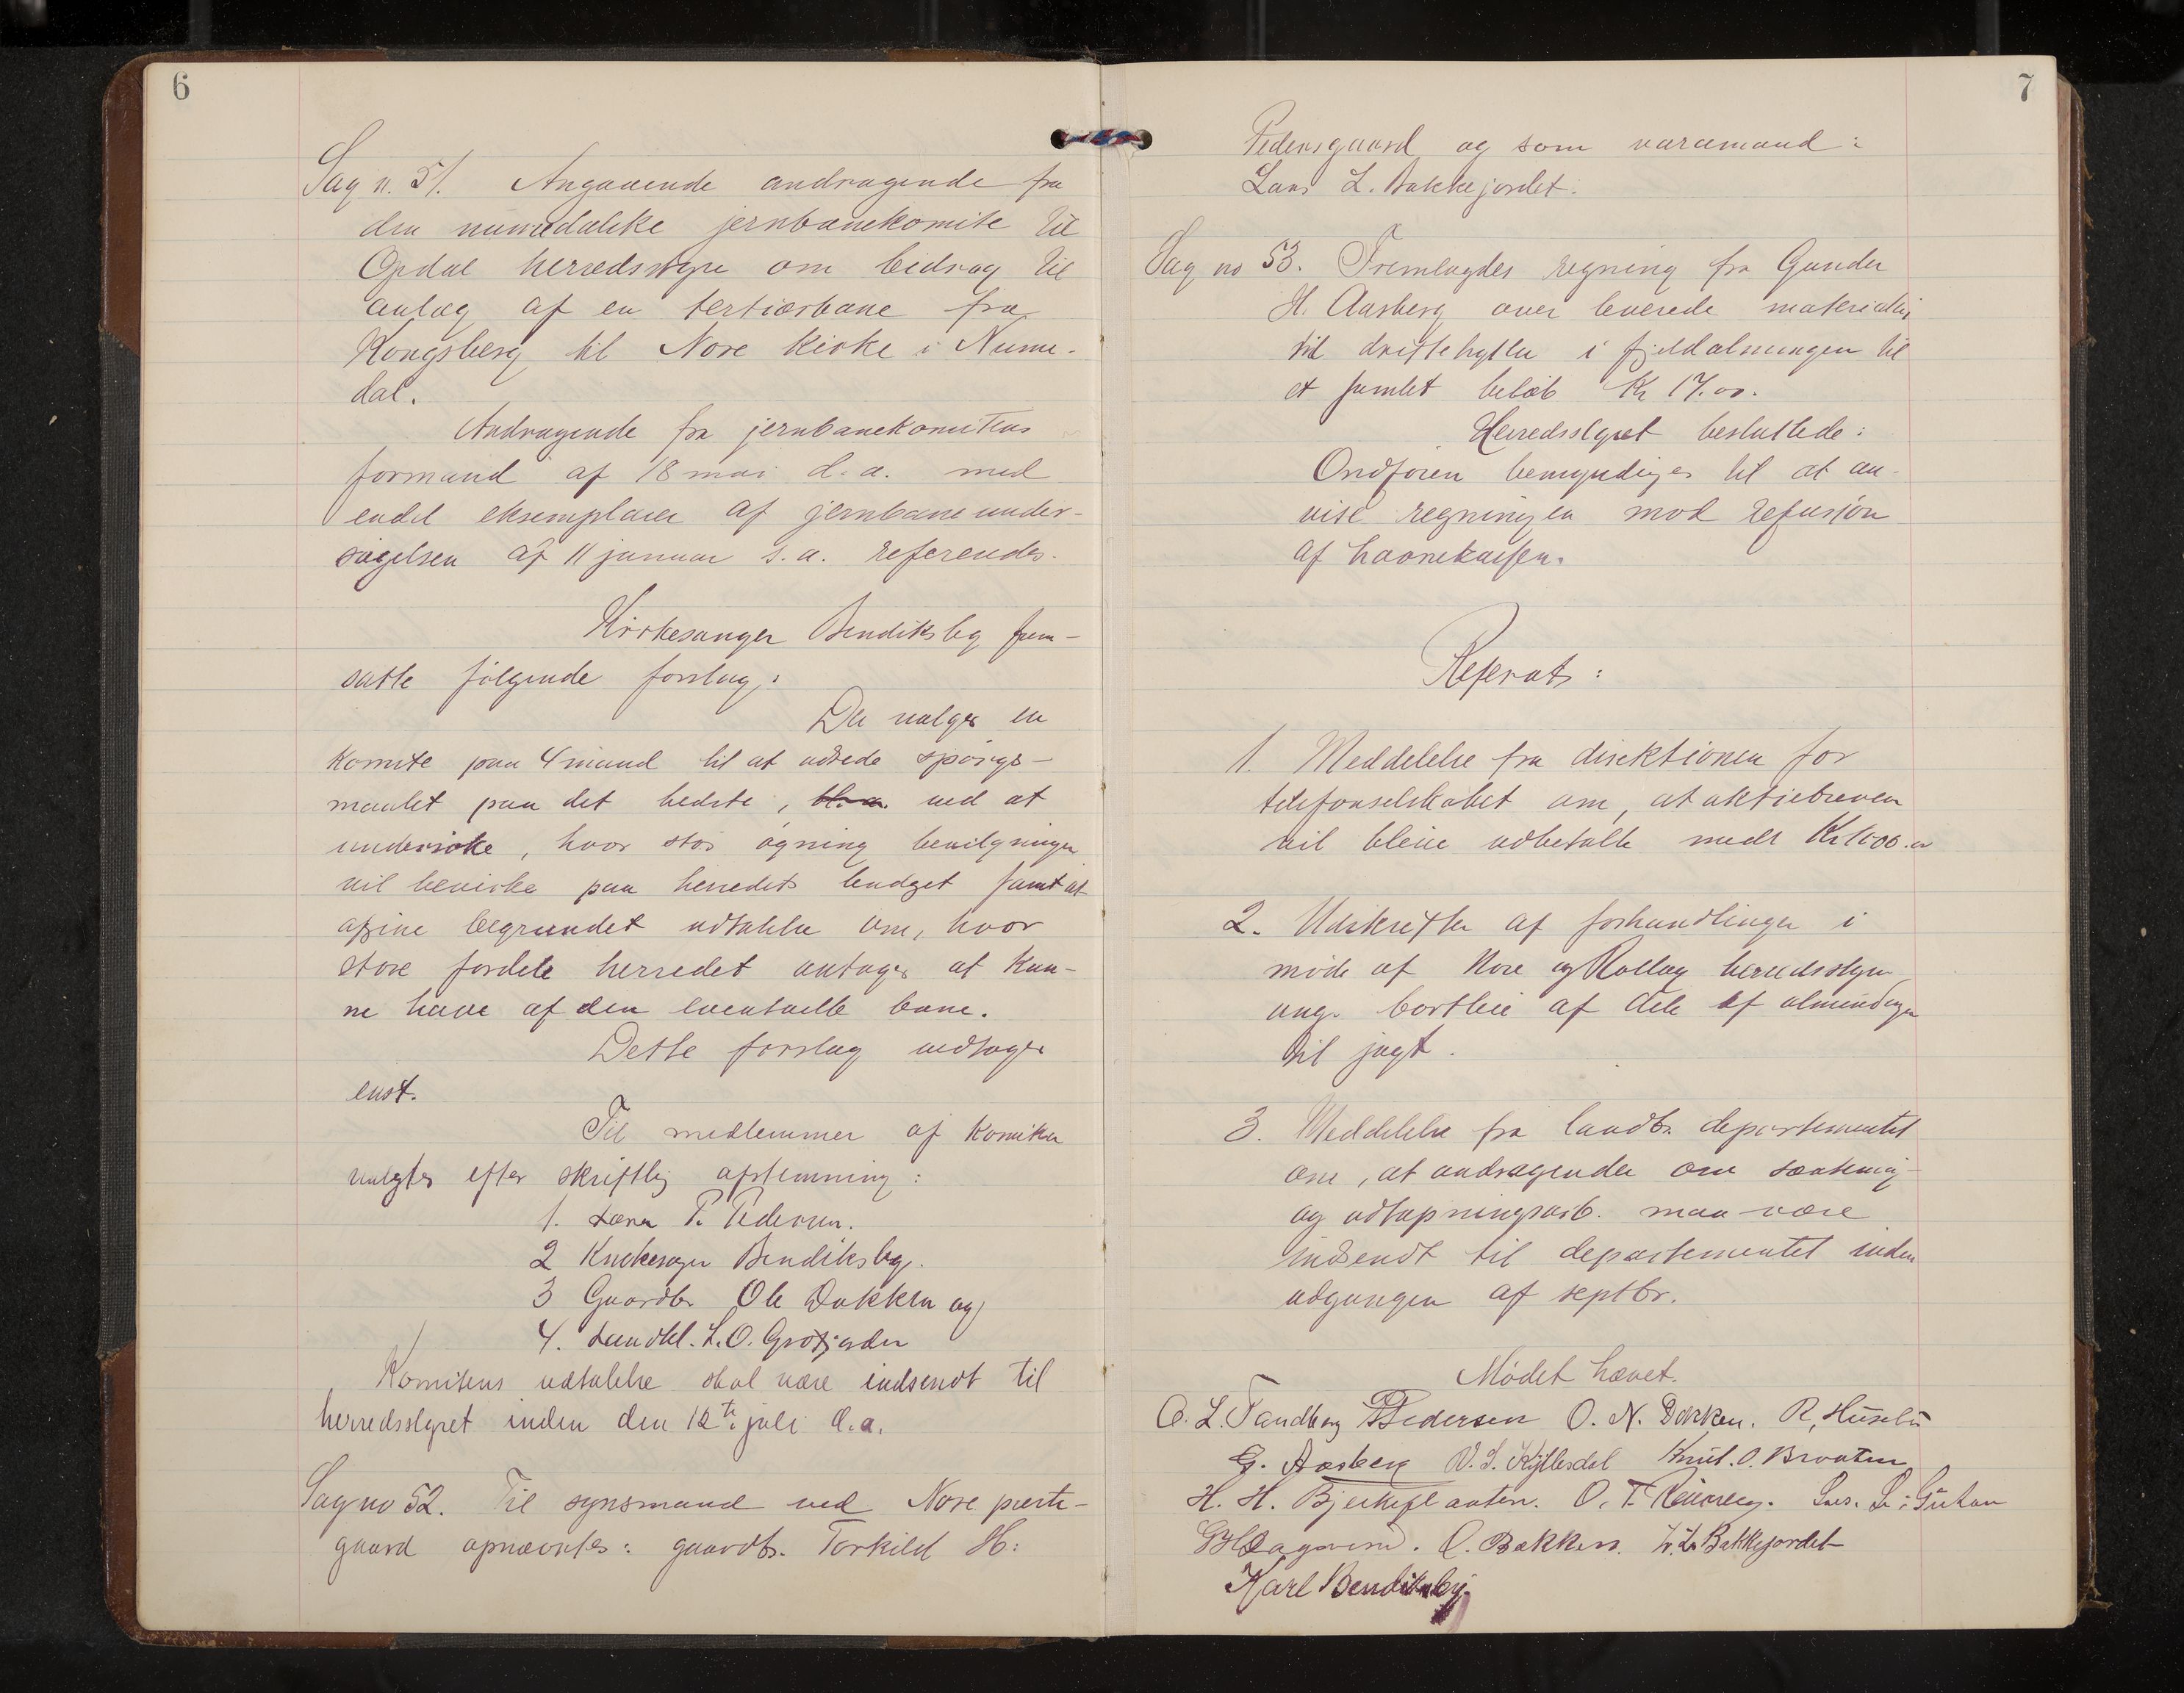 6
Sag n. 51. Angaaende andragende fra
den numedalske jernbanekomite til
Opdal herredsstyre om bidrag til
anlæg af en tertiærbane fra
Kongsberg til Nore kirke i Nume-
dal.
Andragende fra jernbanekomiteens
formand af 18 mai d.a. med
endel eksemplarer af jernbaneunder-
søgelsen af 11 januar s.a. referendes.
Kirkesanger Bendiksby frem-
satte følgende forslag:
Der vælges en
komite paa 4 mand til at udrede spørgs-
maalet paa det bedste, bl.a. ved at
undersøke, hvor stor øgning bevilgningen
vil bevirke paa herredets budget samt at
afgive begrundet udtalelse om, hvor
store fordele herredet antages at kun-
ne have af den eventuelle bane.
Dette forslag vedtoges
enst.
Til medlemmer af komiteen
valgtes efter skriftlig afstemning:
1. Lærer P. Pedersen.
2 Kirkesanger Bendiksby.
3 Gaardbr. Ole Dokken og
4. Landhl. L. O. Grøtjorden
Komiteens udtalelse skal være indsendt til
herredsstyret inden den 12te juli d.a.
Sag no 52. Til synsmand ved Nore præste-
gaard opnævntes: gaardbr. Torkild H:
7
Pedersgaard og som varamand:
Lars L. Bakkejordet.
Sag no 53. Fremlagdes regning fra Gunder
H. Aasberg over leverede materialier
til driftehytter i fjeldalmungen til
et samlet beløb Kr 17.00.
Herredsstyret besluttede:
Ordføren bemyndiges til at an-
vise regningen mod refusion
af havnekassen.
Referat:
1. Meddelelse fra direktionen for
telefonselskabet om, at aktiebreven
vil bleve udbetalte medt
2. Udskrifter af forhandlinger i
møde af Nore og Rollag herredsstyre
ang. bortleie af dele af almindingen
til jagt.
3. Meddelelse fra landbr. departementet
om, at andragender om sænkning
og udtapningsarb. maa være
indsendt til departementet inden
udgangen af septbr.
Mødet hævet.
O. L. Tandberg P Pedersen O. N. Dokken. R. Husebø
G. Aasberg V. S. Kjillesdal Knut. O. Braaten
H. H. Bjerkeflaaten. O. T. Lars. L.
O. Bakken. L. L. Bakkejordet
Karl Bendiksby.